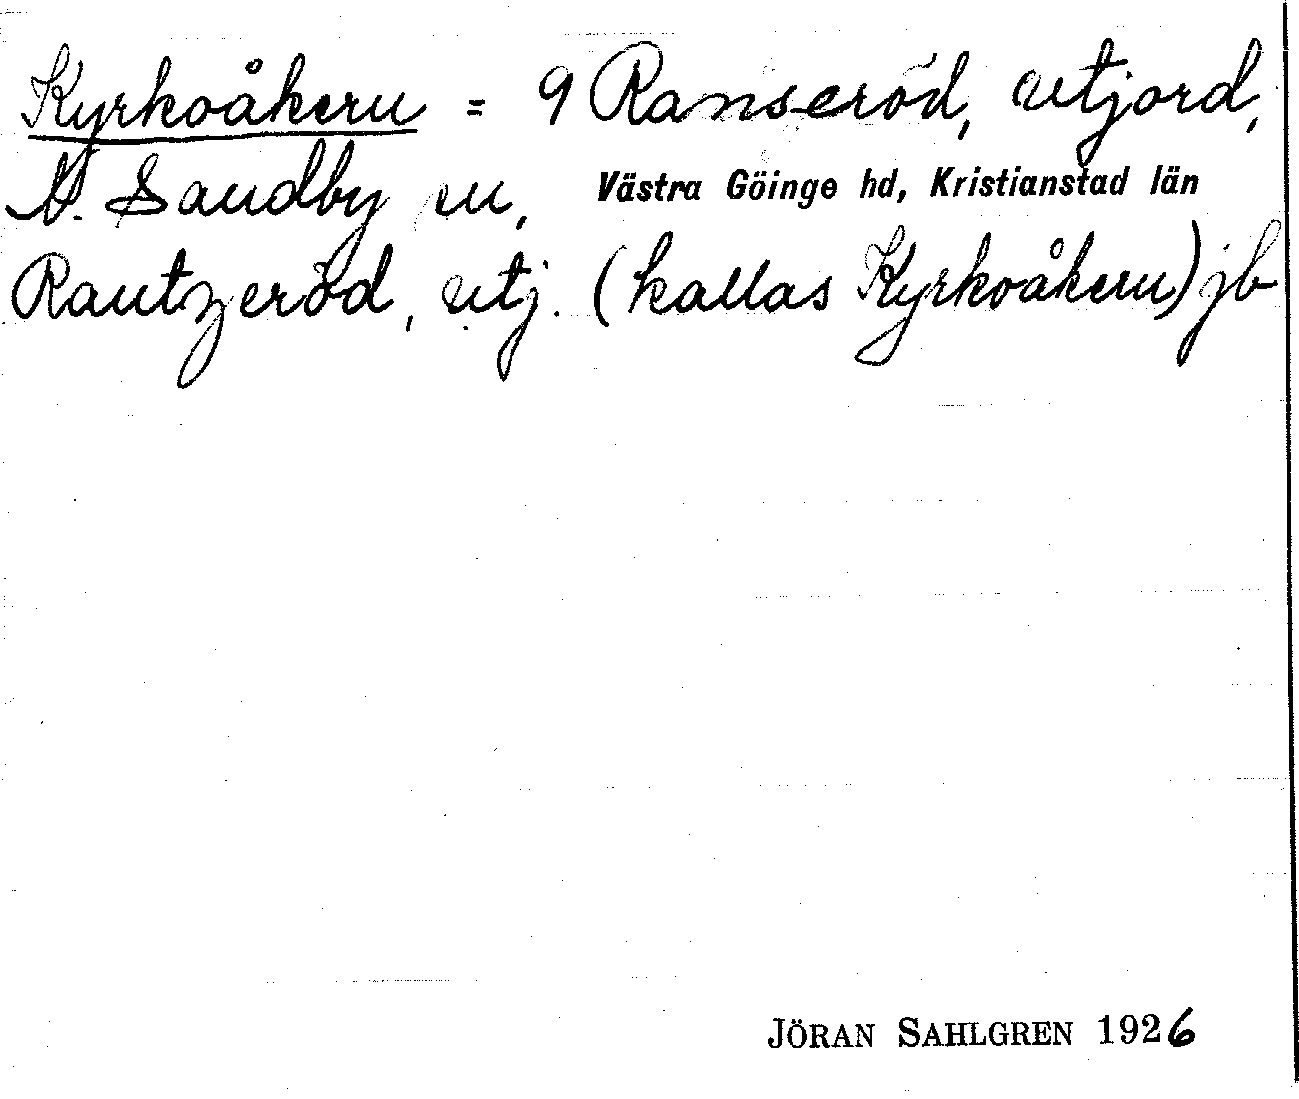 Kyrkoåkern = 9 Ranseröd, utjord,
N. Sandby sn, Västra Göinge hd, Kristianstad län
Rantzeröd, utj. (kallas Kyrkoåkern) jb
JÖRAN SAHLGREN 1926